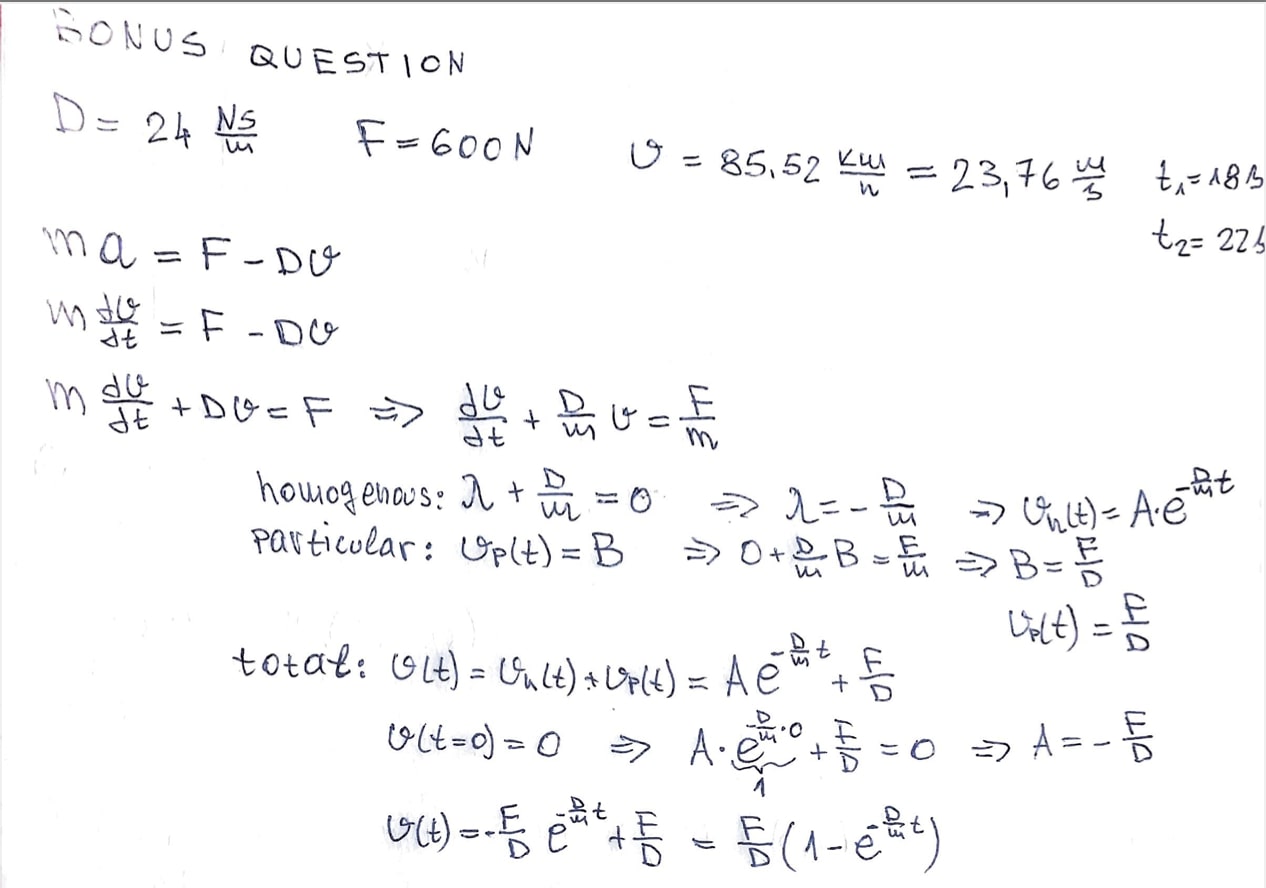 BONUS QUESTION
D = 24 Ns/m F = 600 N v = 85,52 km/h = 23,76 m/s t₁ = 18 s
t₂ = 22 s
ma = F - Dv
m dv/dt = F - Dv
m dv/dt + Dv = F ⇒ dv/dt + D/m v = F/m
homogenous: λ + D/m = 0 ⇒ λ = - D/m ⇒ vₕ(t) = A·e^(-D/m t)
particular: vₚ(t) = B ⇒ 0 + D/m B = F/m ⇒ B = F/D
vₚ(t) = F/D
total: v(t) = vₕ(t) + vₚ(t) = A e^(-D/m t) + F/D
v(t=0) = 0 ⇒ A·e^(-D/m·0) + F/D = 0 ⇒ A = - F/D
1
v(t) = - F/D e^(-D/m t) + F/D = F/D (1 - e^(-D/m t))